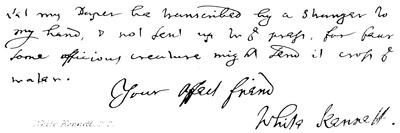 let my Paper be transcribed by a stranger to
my hand, & not sent up to ye press, for fear
some officious creature might send it cross ye
water.
Your affect friend
White Kennett.
White Kennett, D.D.